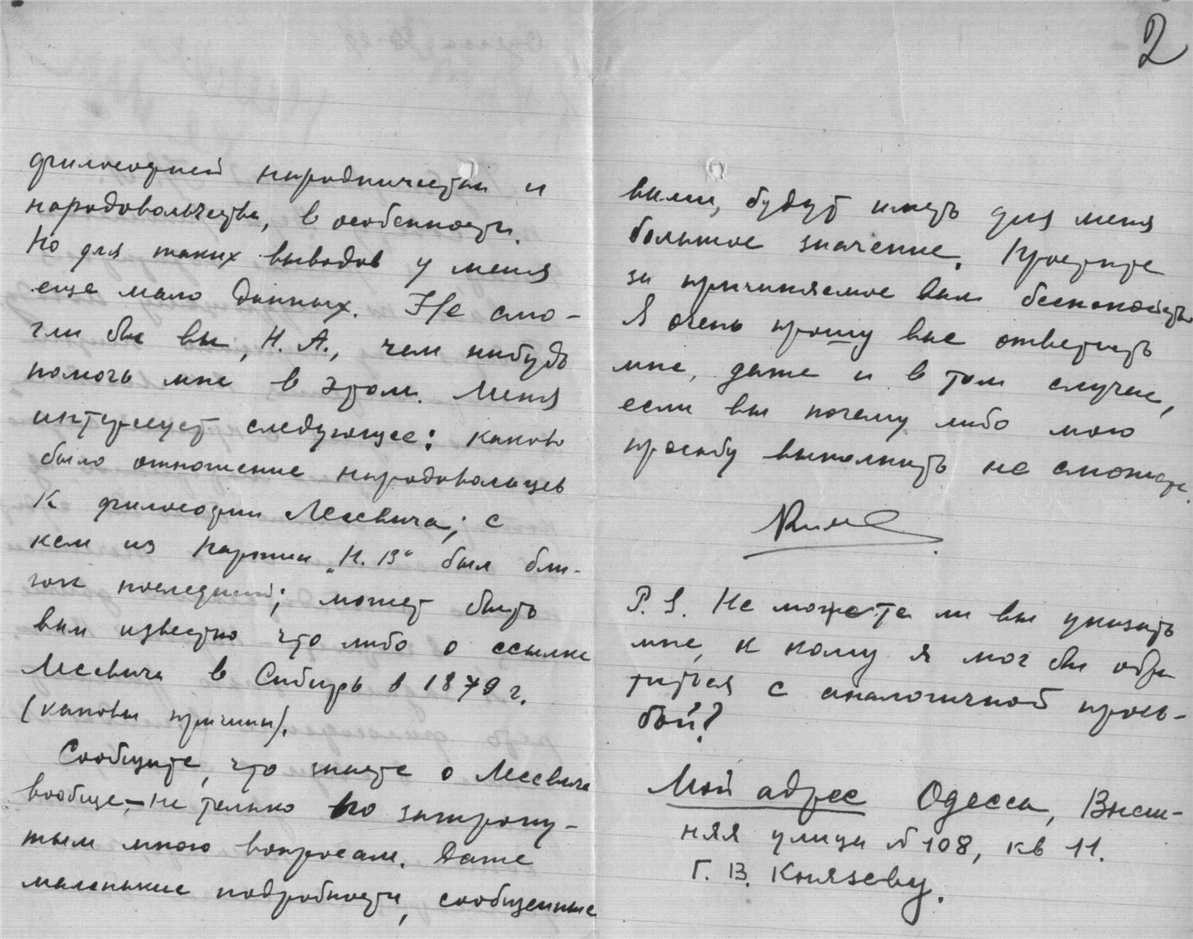 2
философией народничества и
народовольчества, в особенности.
Но для таких выводов у меня
еще мало данных. Не смо-
гли бы вы, Н. А., чем нибудь
помочь мне в этом. Меня
интересует следующее: каково
было отношение народовольцев
к философии Лесевича; с
кем из партии "Н. В" был бли-
зок последний; может быть
вам известно что либо о ссылке
Лесевича в Сибирь в 1879 г.
(каковы причины).
Сообщите, что знаете о Лесевиче
вообще – не только по затрону-
тым мною вопросам. Даже
маленькие подробности, сообщенные
вами, будут иметь для меня
большое значение. Простите
за причиняемое вам беспокойство.
Я очень прошу вас ответить
мне, даже и в том случае,
если вы почему либо мою
просьбу выполнить не сможете.
P. S. Не можете ли вы указать
мне, к кому я мог бы обра-
титься с аналогичной прось-
бой?
Мой адрес Одесса, Внеш-
няя улица № 108, кв 11.
Г. В. Князеву.